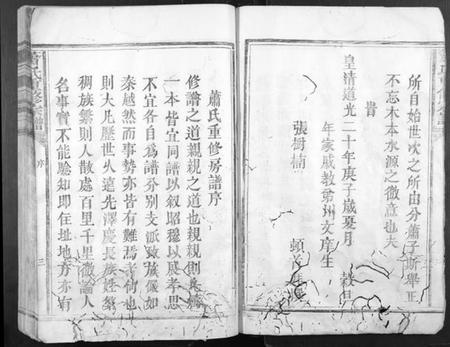 所自始世次之所由分蕭子斯舉正
不忘木本水源之微意也夫
皇清道光二十年庚子歲夏月 穀旦
年家戚教弟州文庠生
張樹楠 頓
蕭氏重修房譜序
修譜之道親親之道也親親則
一本皆宜同譜以叙昭穆以展孝思
不宜各自為譜芥别支派疎族儼如
秦越然而事勢亦皆有難焉者何也
則大凡歷世久遠先澤慶長族姓繁
稠族繁則人散處百里千里微論人
名事實不能驗知即住址地方亦有
序
三